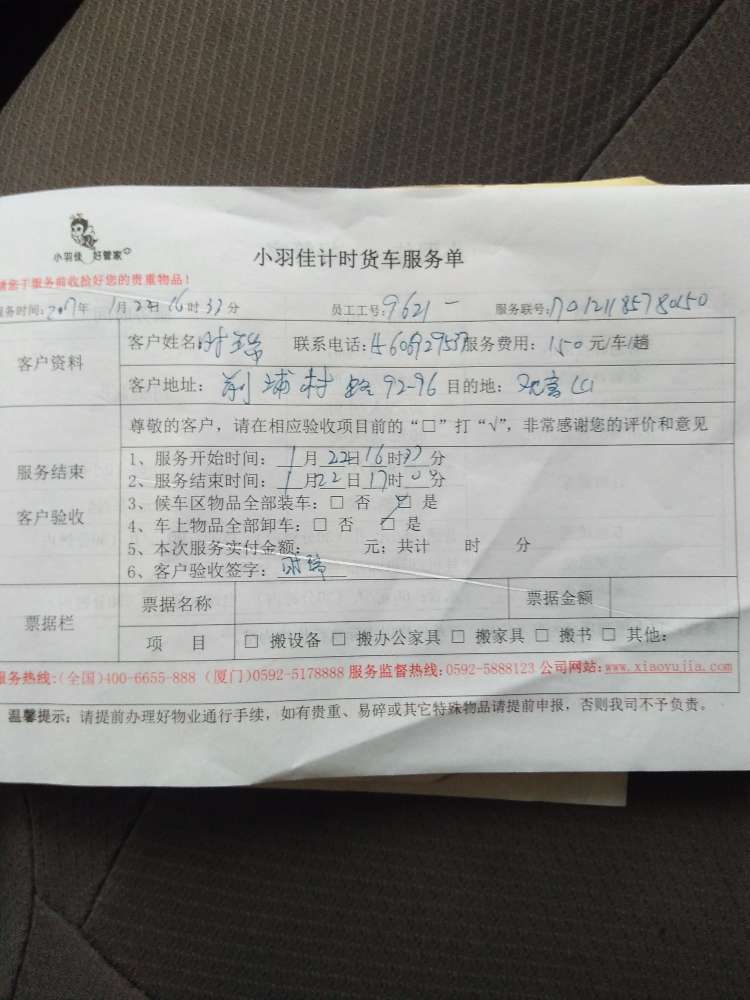 小羽佳 好管家
小羽佳计时货车服务单
请您于服务前收捡好您的贵重物品！
服务时间：2017年 1月22日16时33分 员工工号：9621 服务联号：
客户资料
客户姓名：时瑞 联系电话： 服务费用：150元/车/趟
客户地址： 村 92-96 目的地：观音山
服务结束
客户验收
尊敬的客户，请在相应验收项目前的“□”打“√”，非常感谢您的评价和意见
1、服务开始时间：1月22日16时33分
2、服务结束时间：1月22日17时 分
3、候车区物品全部装车：□ 否 ☑ 是
4、车上物品全部卸车：□ 否 ☑ 是
5、本次服务实付金额： 元；共计 时 分
6、客户验收签字：时瑞
票据栏
票据名称 票据金额
项 目 □ 搬设备 □ 搬办公家具 □ 搬家具 □ 搬书 □ 其他：
服务热线：(全国)400-6655-888 (厦门)0592-5178888 服务监督热线：0592-5888123 公司网站：www.xiaoyujia.com
温馨提示：请提前办理好物业通行手续，如有贵重、易碎或其它特殊物品请提前申报，否则我司不予负责。